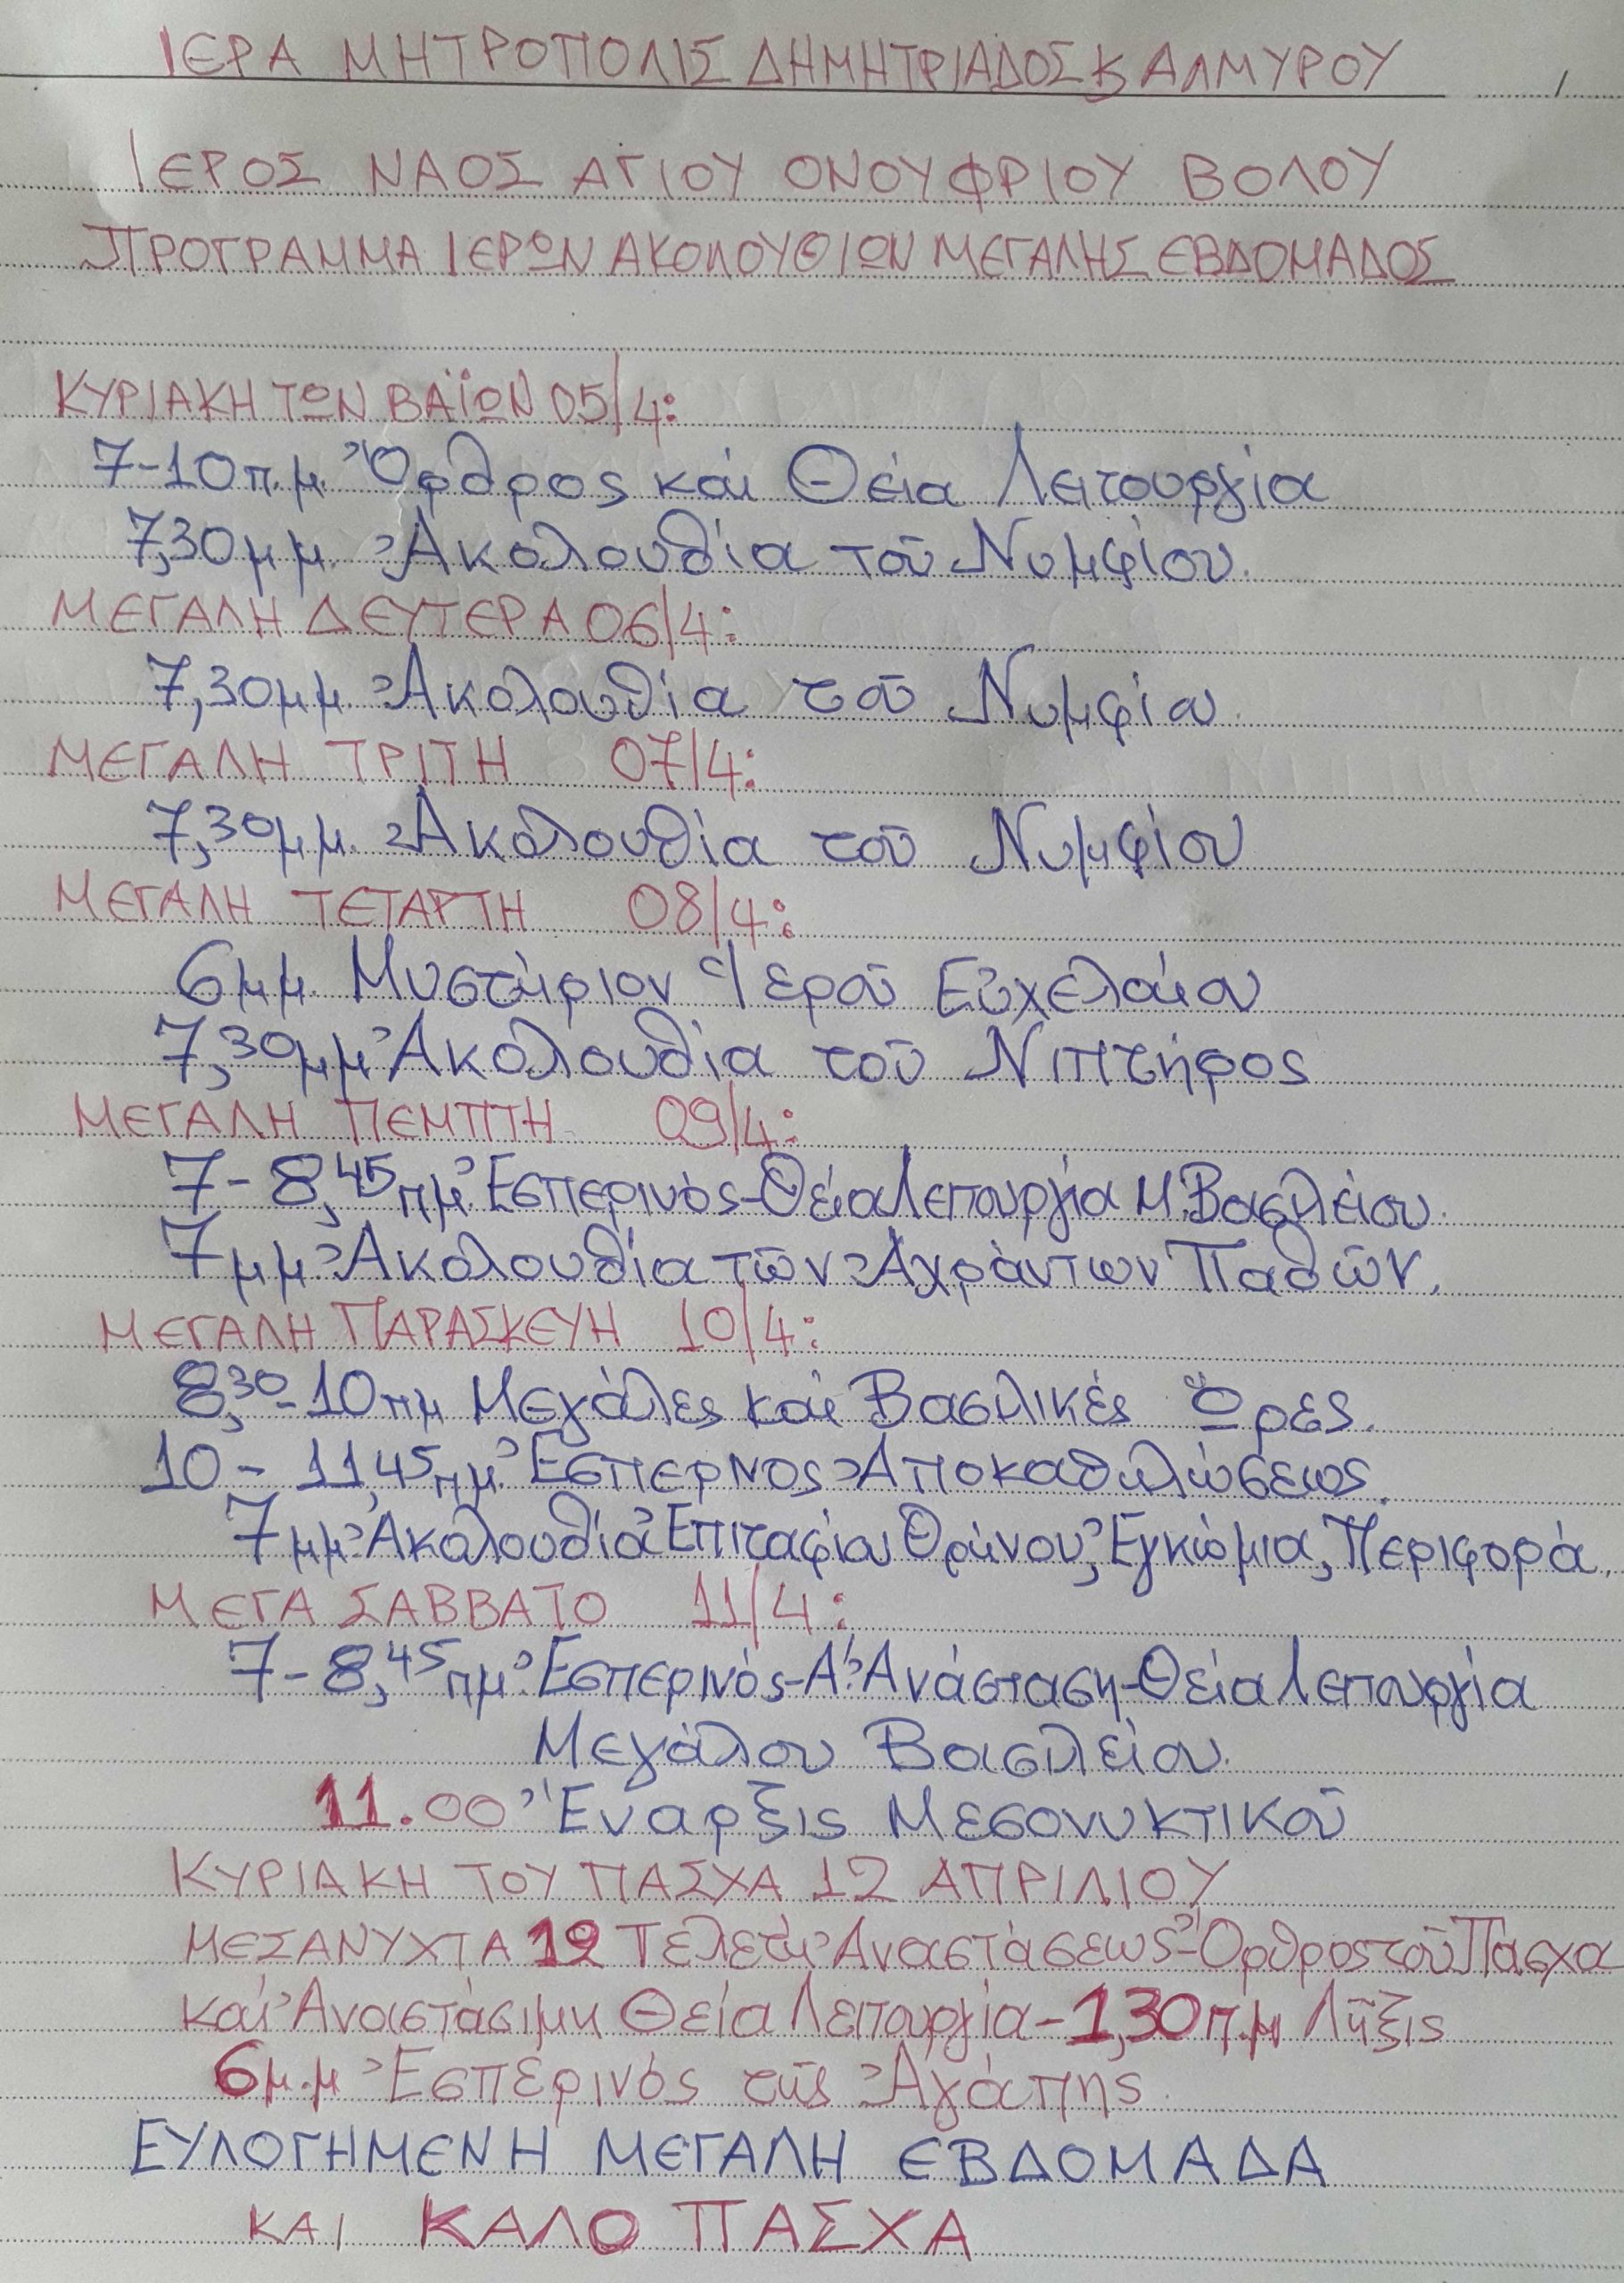 ΙΕΡΑ ΜΗΤΡΟΠΟΛΙΣ ΔΗΜΗΤΡΙΑΔΟΣ Κ ΑΛΜΥΡΟΥ
ΙΕΡΟΣ ΝΑΟΣ ΑΓΙΟΥ ΟΝΟΥΦΡΙΟΥ ΒΟΛΟΥ
ΠΡΟΓΡΑΜΜΑ ΙΕΡΩΝ ΑΚΟΛΟΥΘΙΩΝ ΜΕΓΑΛΗΣ ΕΒΔΟΜΑΔΟΣ
ΚΥΡΙΑΚΗ ΤΩΝ ΒΑΪΩΝ 05/4:
7-10π.μ. Ὄρθρος καί Θεία Λειτουργία
7,30μμ. Ἀκολουθία τοῦ Νυμφίου.
ΜΕΓΑΛΗ ΔΕΥΤΕΡΑ 06/4:
7,30μμ Ἀκολουθία τοῦ Νυμφίου.
ΜΕΓΑΛΗ ΤΡΙΤΗ 07/4:
7,30μμ. Ἀκολουθία τοῦ Νυμφίου
ΜΕΓΑΛΗ ΤΕΤΑΡΤΗ 08/4:
6μμ. Μυστήριον Ἱεροῦ Εὐχελαίου
7,30μμ Ἀκολουθία τοῦ Νιπτήρος
ΜΕΓΑΛΗ ΠΕΜΠΤΗ 09/4:
7-8,45πμ. Ἑσπερινός-Θεία Λειτουργία Μ. Βασιλείου.
7μμ. Ἀκολουθία τῶν Ἀχράντων Παθῶν.
ΜΕΓΑΛΗ ΠΑΡΑΣΚΕΥΗ 10/4:
8,30-10πμ Μεγάλες καί Βασιλικές Ὧρες.
10-11,45πμ. Ἑσπερινος Ἀποκαθηλώσεως.
7μμ. Ἀκολουθία Ἐπιταφίου Θρήνου, Ἐγκώμια, Περιφορά.
ΜΕΓΑ ΣΑΒΒΑΤΟ 11/4:
7-8,45πμ. Ἑσπερινός-Α! Ἀνάσταση-Θεία Λειτουργία
Μεγάλου Βασιλείου.
11.00 Ἔναρξις Μεσονυκτικοῦ
ΚΥΡΙΑΚΗ ΤΟΥ ΠΑΣΧΑ 12 ΑΠΡΙΛΙΟΥ
ΜΕΣΑΝΥΧΤΑ 12 Τελετή Ἀναστάσεως-Ὄρθρος τοῦ Πάσχα
καί Ἀναστάσιμη Θεία Λειτουργία-1,30π.μ Λῆξις
6μ.μ Ἑσπερινός τῆς Ἀγάπης.
ΕΥΛΟΓΗΜΕΝΗ ΜΕΓΑΛΗ ΕΒΔΟΜΑΔΑ
ΚΑΙ ΚΑΛΟ ΠΑΣΧΑ